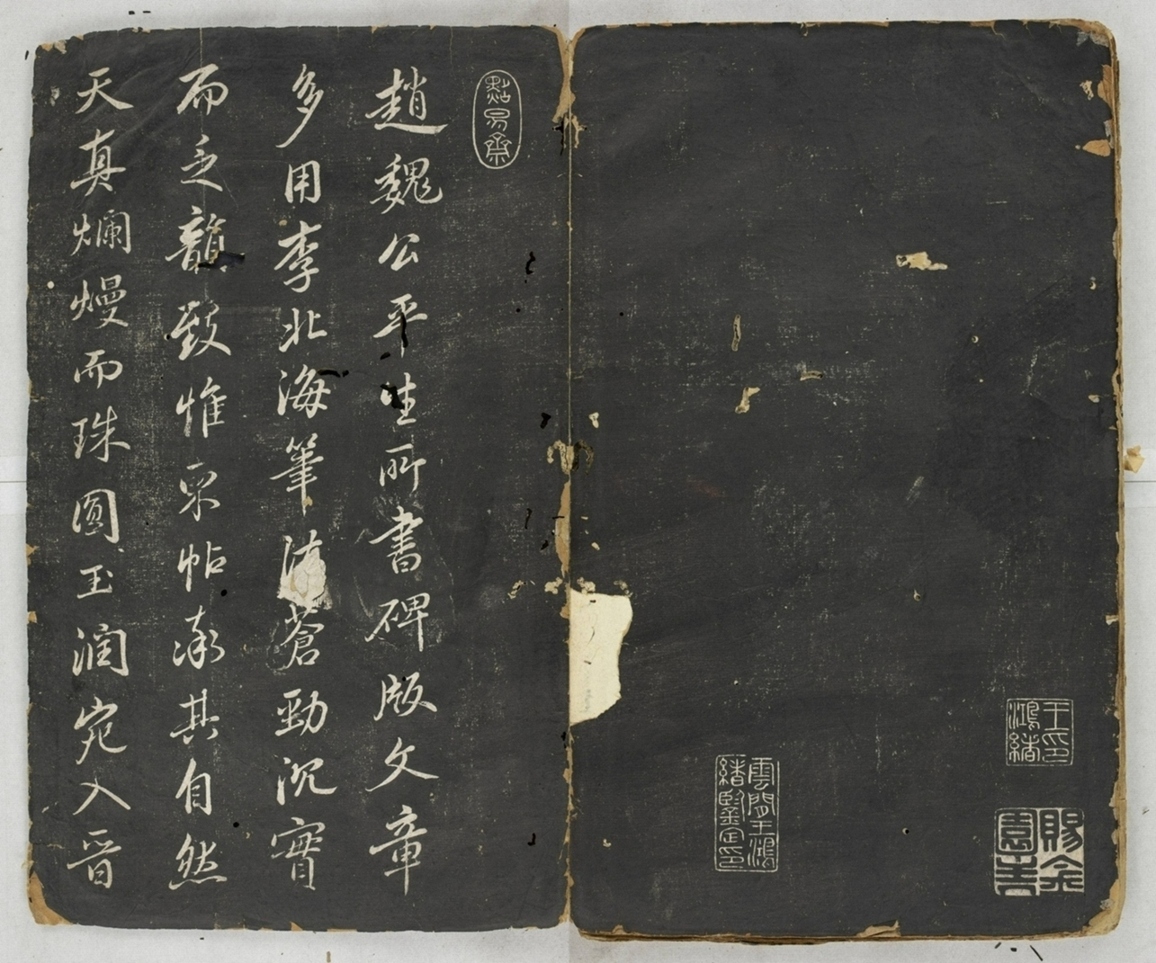 王印
鴻緒
賜金
園主
雲間王鴻
緒鑒定印
點易齋
趙魏公平生所書碑版文章
多用李北海筆法蒼勁沉實
而乏韻致惟帖率其自然
天真爛熳而珠圓玉潤宛入晉